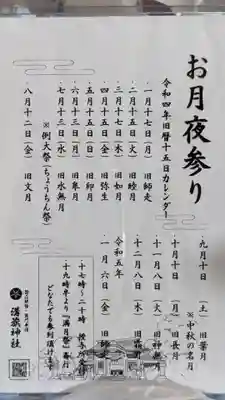 お月夜参り
令和四年旧暦十五日カレンダー
一月十七日(月)旧師走
二月十五日(火)旧睦月
三月十七日(木)旧如月
四月十五日(金)旧弥生
五月十五日(日)旧卯月
六月十三日(月)旧皐月
七月十三日(水)旧水無月
※例大祭(ちょうちん祭)
八月十二日(金)旧文月
九月十日(土)旧葉月
※中秋の名月
十月十日(月)旧長月
十一月八日(火)旧神無月
十二月八日(木)旧霜月
令和五年
一月六日(金)旧師走
十七時~二十時 授与所受付
十九時半より『満月祭』斎行
どなたでも参列頂けます
溝旗神社